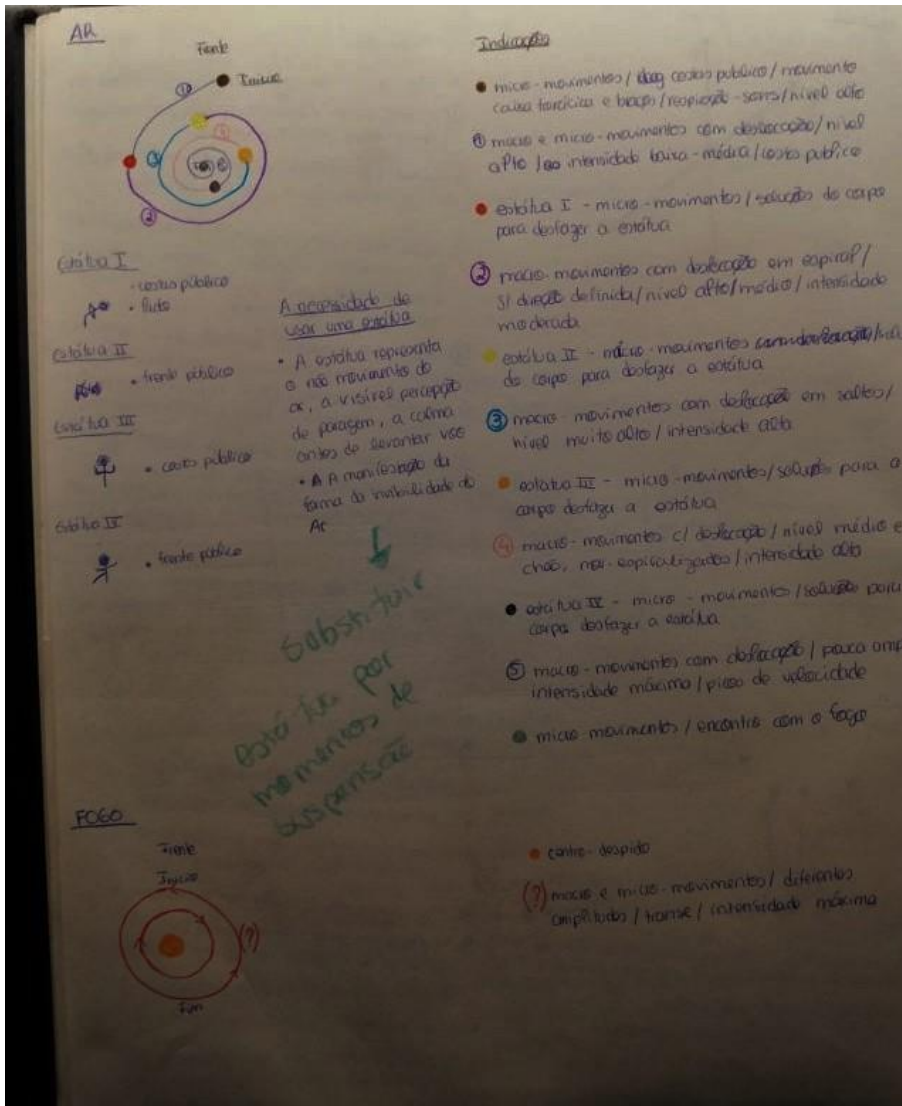 AR
Frente
Início
①
③
⑤
②
Estátua I
• costas público
Estátua II
• frente público
Estátua III
• costas público
Estátua IV
• frente público
A necessidade de
usar uma estátua
• A estátua representa
o não movimento do
ar, a visível percepção
de paragem, a calma
antes de levantar voo
• A manifestação da
forma da invisibilidade do
Ar
Substituir
estátua por
momentos de
suspensão
Indicações
• micro-movimentos / costas publico / movimento
caixa torácica e braços / respiração - / nível alto
① macro e micro-movimentos com deslocação / nível
alto / intensidade baixa-média / costas publico
• estátua I - micro-movimentos / solução do corpo
para desfazer a estátua
② macro-movimentos com deslocação em espiral /
s/ direção definida / nível alto / médio / intensidade
moderada
• estátua II - micro-movimentos
do corpo para desfazer a estátua
③ macro-movimentos com deslocação em saltos /
nível muito alto / intensidade alta
• estátua III - micro-movimentos / solução para o
corpo desfazer a estátua
④ macro-movimentos c/ deslocação / nível médio e
chão, / intensidade alta
• estátua IV - micro-movimentos / solução para
corpo desfazer a estátua
⑤ macro-movimentos com deslocação / pouca
intensidade máxima / de velocidade
• micro movimentos / encontro com o fogo
FOGO
Frente
Início
(?)
Fim
• centro-despido
(?) macro e micro-movimentos / diferentes
amplitudes / transe / intensidade máxima